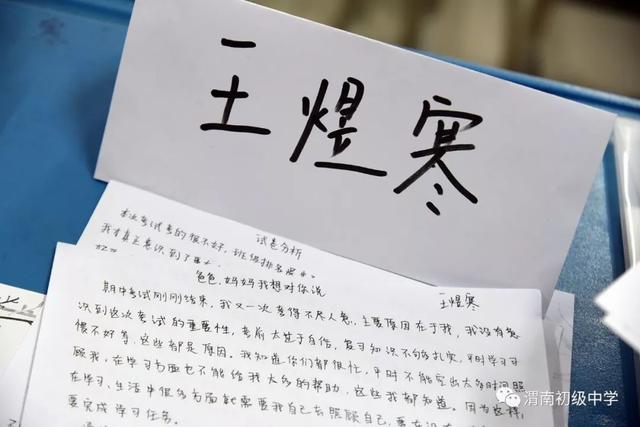 王煜寒
试卷分析
本次考试考的很不好,班级排名
我才真正意识到了
爸爸,妈妈我想对你说
王煜寒
期中考试刚刚结束,我又一次考得不尽人意,主要原因在于我,我没有意
识到这次考试的重要性,考前太过于自信,复习知识不够扎实,平时学习习
惯不好等,这些都是原因。我知道你们都很忙,平时不能空出太多时间照
顾我,在学习方面也不能给我太多的帮助,这些我都知道。因为这样,
在学习、生活中很多方面就需要我自己去照顾自己,要在没
要完成学习任务。
渭南初级中学